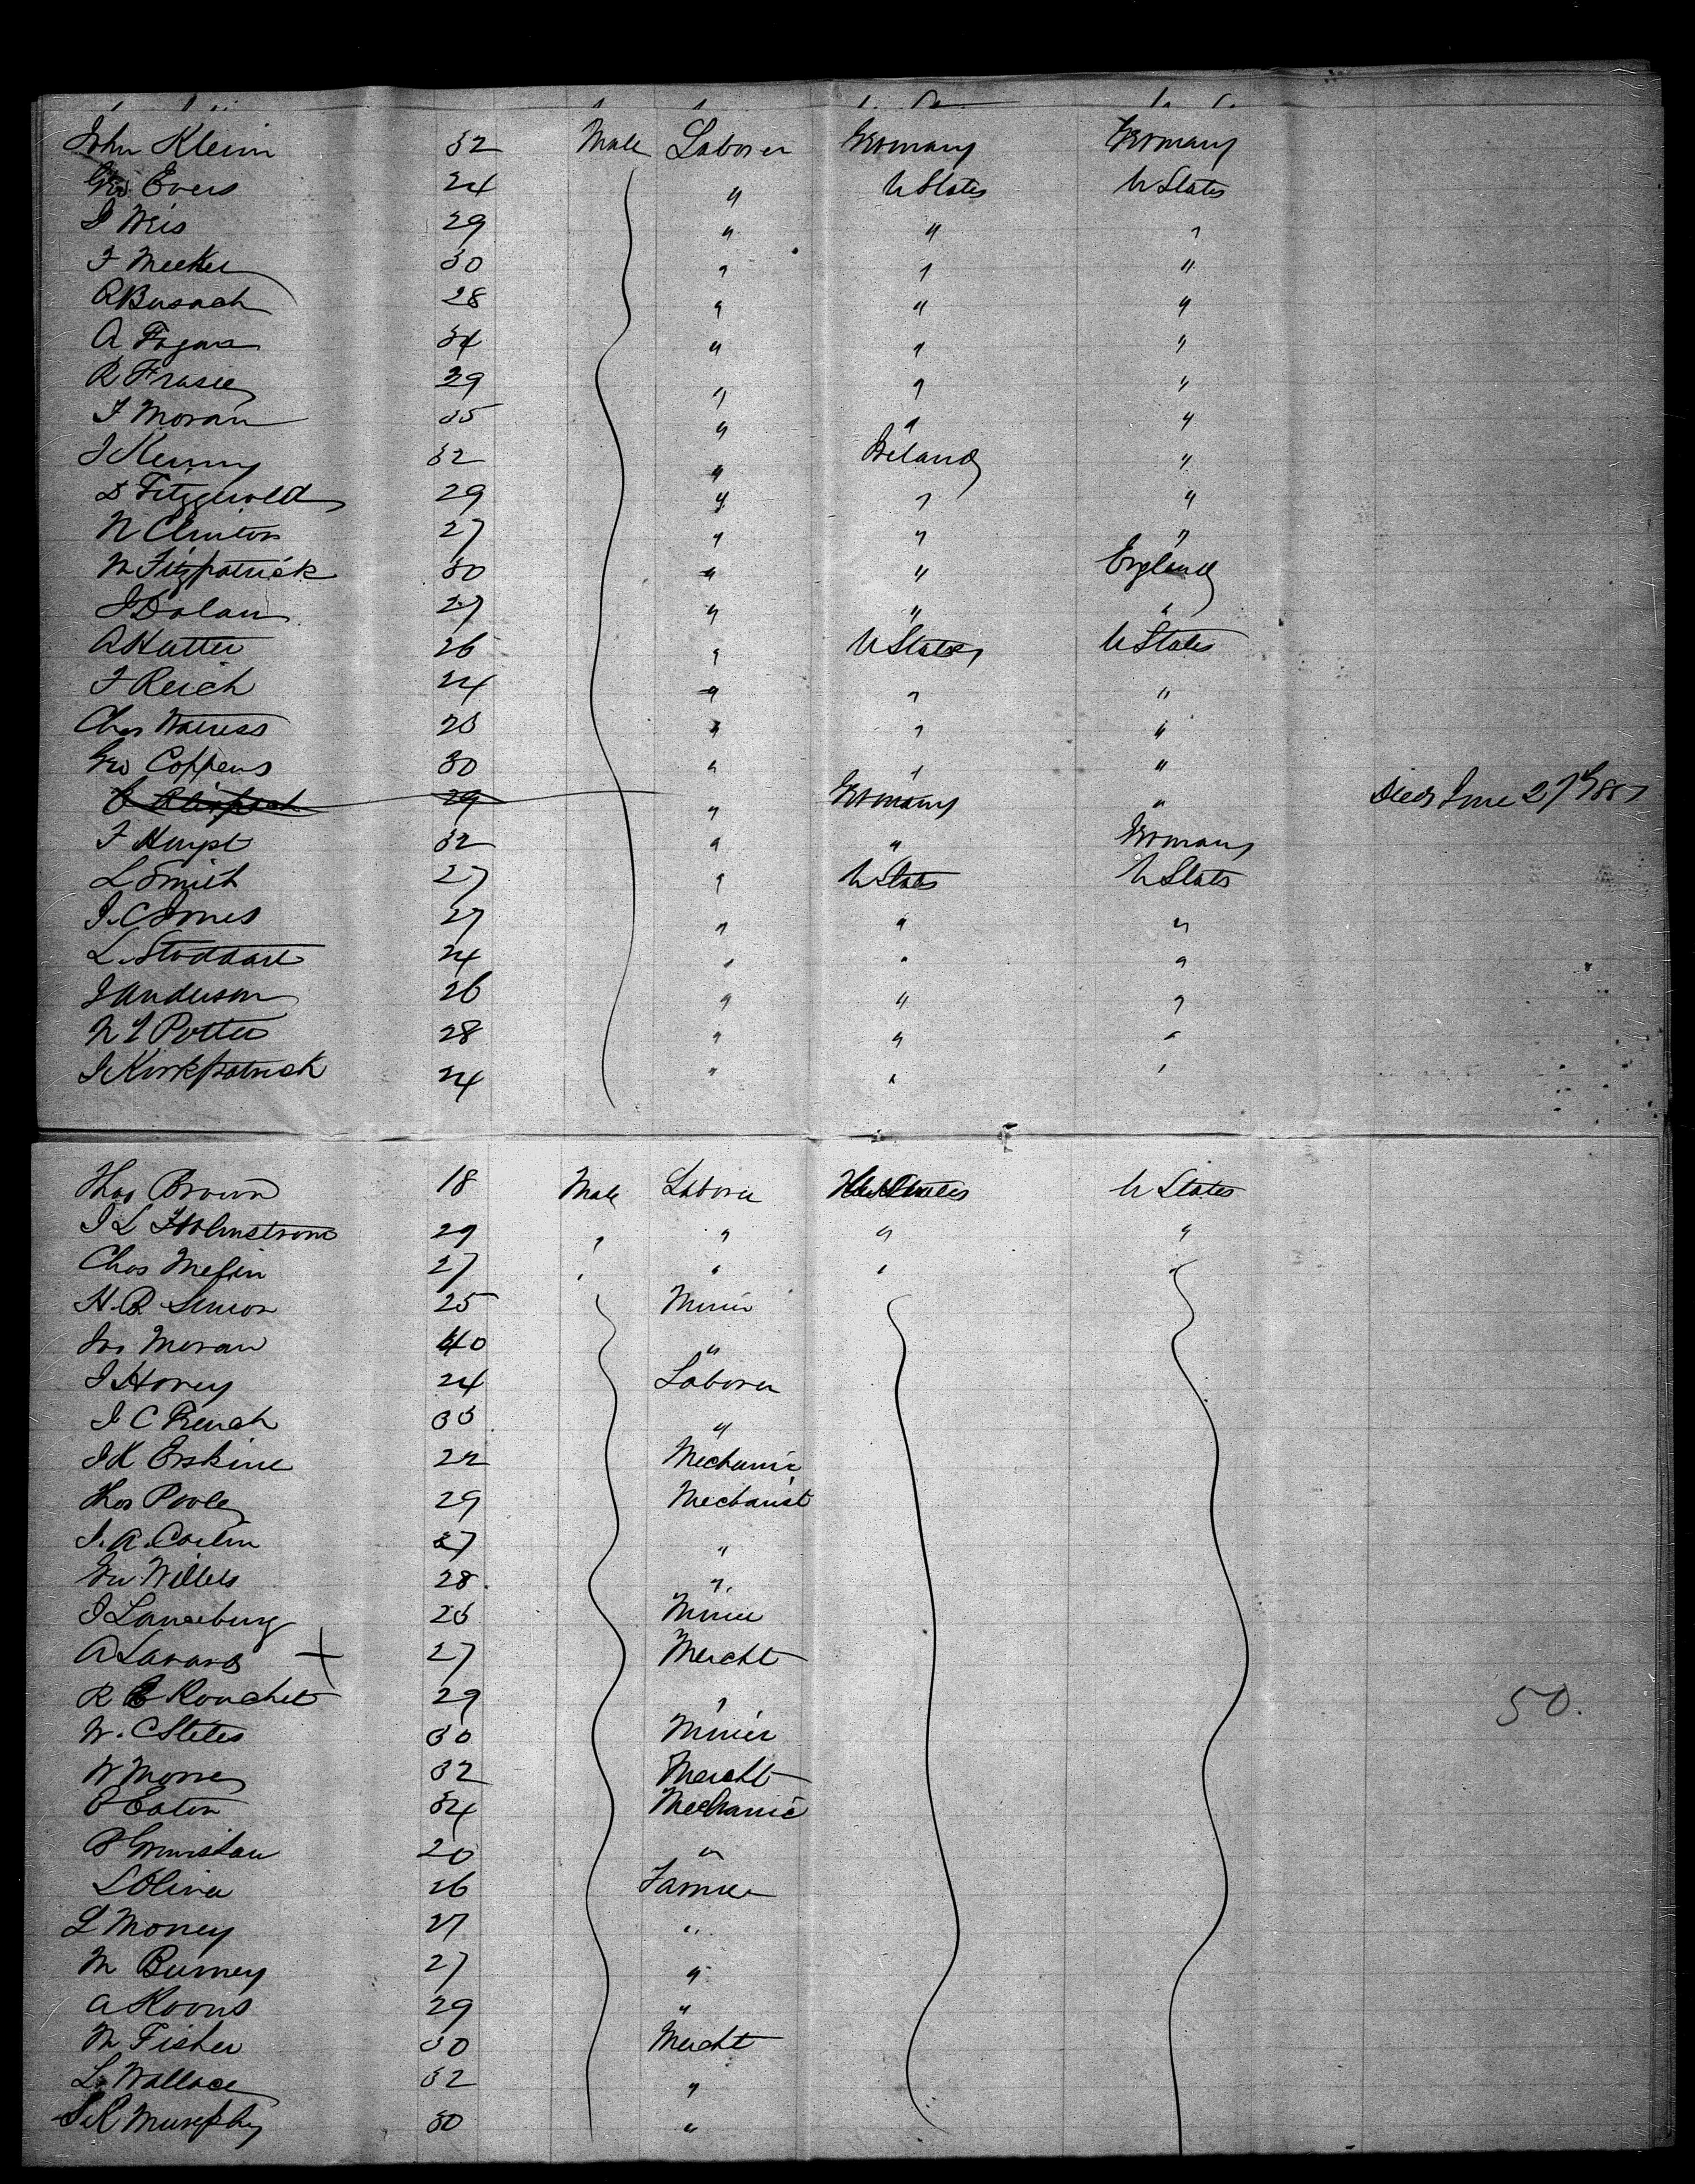 John Klein 32 Male Laborer Germany Germany
Geo Evers 24 " U States U States
J Weis 29 " " "
F Meeker 30 " " "
28 " " "
A 34 " " "
R Frasee 29 " " "
J Moran 35 " " "
J Kenny 32 " Ireland "
D Fitzgerald 29 " " "
N Clinton 27 " " "
M Fitzpatrick 30 " " England
J Dolan 27 " " "
A Hatter 26 " U States U States
F Reich 24 " " "
Chas " " "
Geo Coppens 30 " " "
29 " Germany " Died June 27
F Haupt 32 " " Germany
L Smith 27 " U States U States
J. C Jones 27 " " "
L. Stoddart 24 " " "
J Anderson 26 " " "
Porter 28 " " "
J Kirkpatrick 24 " " "
Thos Brown 18 Male Laborer U States U States
J L Holmstrom 29 " " " "
Chas 27 " " " "
H. B. Simon 25 Miner
Jas Moran 40 "
J Horey 24 Laborer
J C French "
J K Erskine 22 Mechanic
Thos Pooley 29 Mechanist
J. A. Carlin 27 "
Geo Willets 28 "
J Laneburg Miner
A Lavard + 27 Mercht
R E Rouchet 29 "
W. C Stetes 30 Miner
W Morre 32 Mercht
Eaton 34 Mechanic
20 "
L Oliver 26 Farmer
L Money 27 "
M Burney 27 "
A Koons 29 "
M Fisher 30 Mercht
L. Wallace 32 "
S. R Murphy 30 "
50.